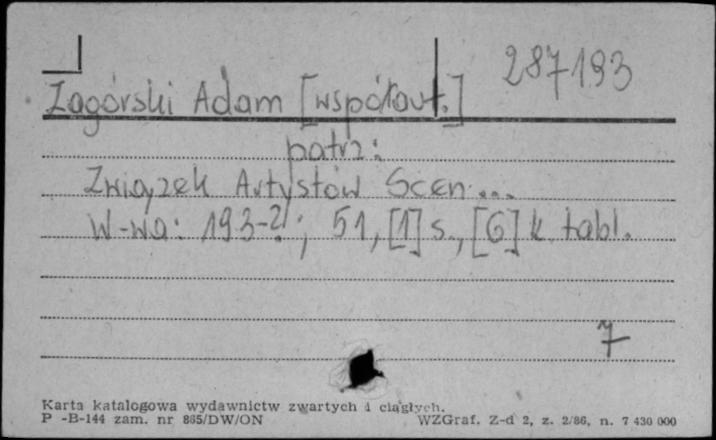 287193
Zagórski Adam [współaut.]
patrz:
Związek Artystów Scen...
W-wa: 193-?; 51, [1] s., [6] k. tabl.
7
Karta katalogowa wydawnictw zwartych i ciągłych.
P -B-144 zam. nr 865/DW/ON WZGraf. Z-d 2, z. 2/86, n. 7 430 000